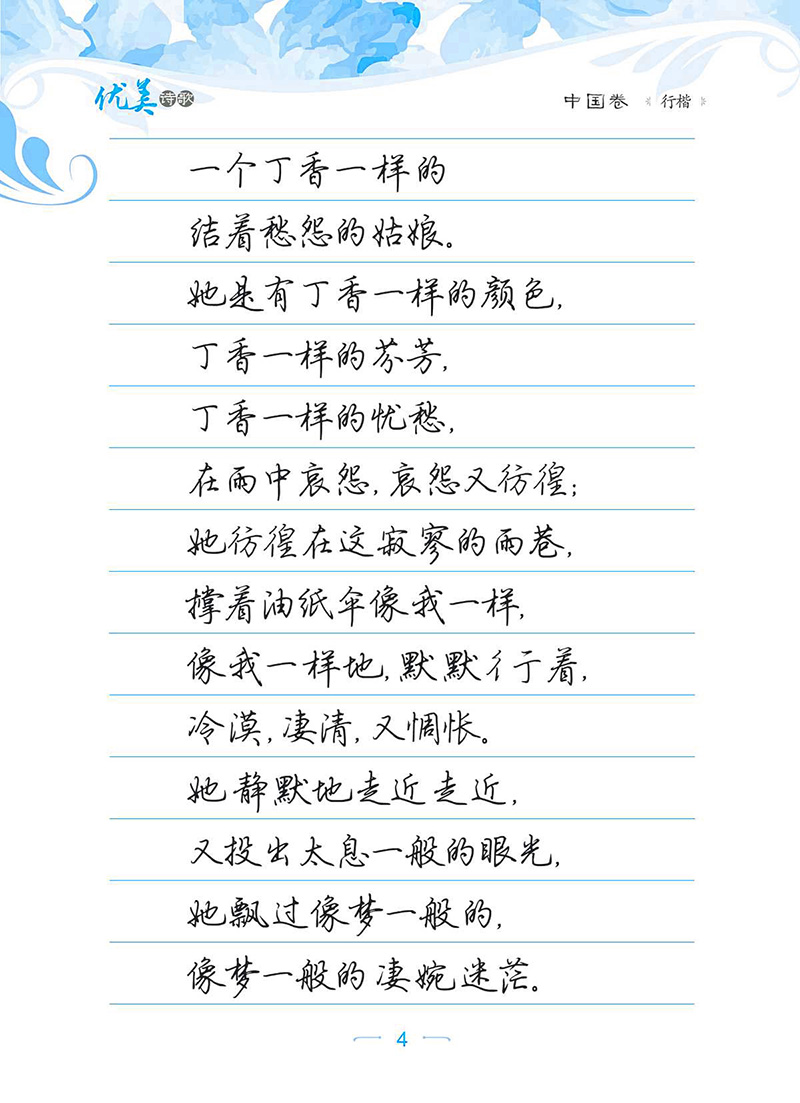 优美诗歌
中国卷《行楷》
一个丁香一样的
结着愁怨的姑娘。
她是有丁香一样的颜色,
丁香一样的芬芳,
丁香一样的忧愁,
在雨中哀怨,哀怨又彷徨;
她彷徨在这寂寥的雨巷,
撑着油纸伞像我一样,
像我一样地,默默彳亍着,
冷漠,凄清,又惆怅。
她静默地走近走近,
又投出太息一般的眼光,
她飘过像梦一般的,
像梦一般的凄婉迷茫。
4